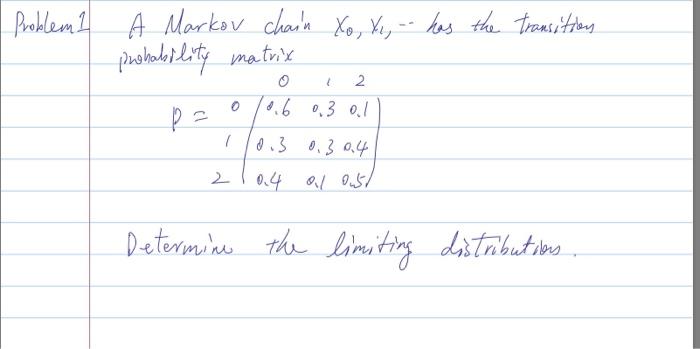 Problem 1 A Markov chain X₀, X₁, -- has the transition
probability matrix
0 1 2
P = 0 0.6 0.3 0.1
1 0.3 0.3 0.4
2 0.4 0.1 0.5
Determine the limiting distribution.